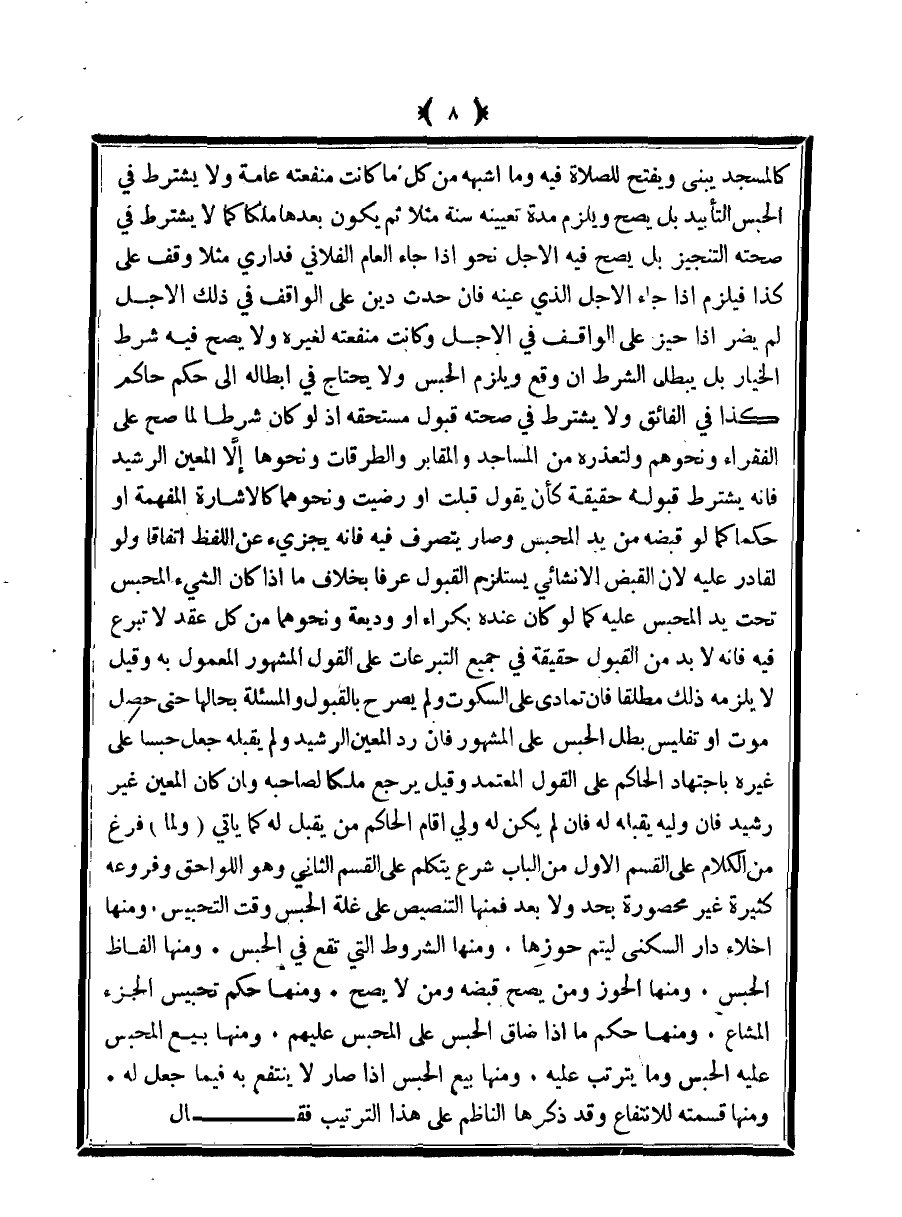 ﴿ ٨ ﴾
كالمسجد يبنى ويفتح للصلاة فيه وما اشبهه من كل ما كانت منفعته عامة ولا يشترط في
الحبس التأبيد بل يصح ويلزم مدة تعيينه سنة مثلا ثم يكون بعدها ملكا كما لا يشترط في
صحته التنجيز بل يصح فيه الاجل نحو اذا جاء العام الفلاني فداري مثلا وقف على
كذا فيلزم اذا جاء الاجل الذي عينه فان حدث دين على الواقف في ذلك الاجـل
لم يضر اذا حيز على الواقـف في الاجـل وكانت منفعته لغيره ولا يصح فيـه شرط
الخيار بل يبطل الشرط ان وقع ويلزم الحبس ولا يحتاج في ابطاله الى حكم حاكم
كـذا في الفائق ولا يشترط في صحته قبول مستحقه اذ لو كان شرطـا لما صح على
الفقراء ونحوهم ولتعذره من المساجد والمقابر والطرقات ونحوها إلَّا المعين الرشيد
فانه يشترط قبولـه حقيقة كأن يقول قبلت او رضيت ونحوهما كالاشارة المفهمة او
حكما كما لو قبضه من يد المحبس وصار يتصرف فيه فانه يجزيء عن اللفظ اتفاقا ولو
لقادر عليه لان القبض الانشائي يستلزم القبول عرفا بخلاف ما اذا كان الشيء المحبس
تحت يد المحبس عليه كما لو كان عنده بكراء او وديعة ونحوهما من كل عقد لا تبرع
فيه فانه لا بد من القبول حقيقة في جميع التبرعات على القول المشهور المعمول به وقيل
لا يلزمه ذلك مطلقا فان تمادى على السكوت ولم يصرح بالقبول والمسئلة بحالها حتى حصل
موت او تفليس بطل الحبس على المشهور فان رد المعين الرشيد ولم يقبله جعل حبسا على
غيره باجتهاد الحاكم على القول المعتمد وقيل يرجع ملكا لصاحبه وان كان المعين غير
رشيد فان وليه يقبله له فان لم يكن له ولي اقام الحاكم من يقبل له كما ياتي ( ولما ) فرغ
من الكلام على القسم الاول من الباب شرع يتكلم على القسم الثاني وهو اللواحق وفروعه
كثيرة غير محصورة بحد ولا بعد فمنها التنصيص على غلة الحبس وقت التحبيس . ومنها
اخلاء دار السكنى ليتم حوزها . ومنها الشروط التي تقع في الحبس . ومنها الفـاظ
الحبس . ومنها الحوز ومن يصح قبضه ومن لا يصح . ومنهـا حكم تحبيس الجزء
المشاع . ومنهـا حكم ما اذا ضاق الحبس على المحبس عليهم . ومنهـا بيـع المحبس
عليه الحبس وما يترتب عليه . ومنها بيع الحبس اذا صار لا ينتفع به فيما جعل له .
ومنها قسمته للانتفاع وقد ذكرها الناظم على هذا الترتيب فقـــــــال